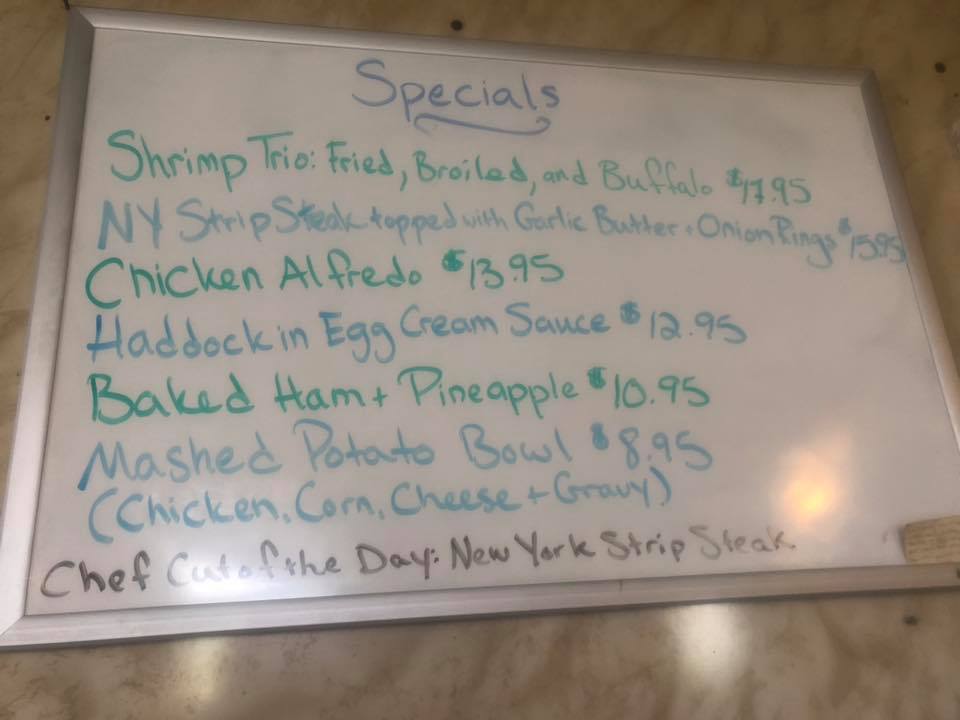 Specials
Shrimp Trio: Fried, Broiled, and Buffalo $17.95
NY Strip Steak topped with Garlic Butter + Onion Rings $15.95
Chicken Alfredo $13.95
Haddock in Egg Cream Sauce $12.95
Baked Ham + Pineapple $10.95
Mashed Potato Bowl $8.95
(Chicken, Corn, Cheese + Gravy)
Chef Cut of the Day: New York Strip Steak